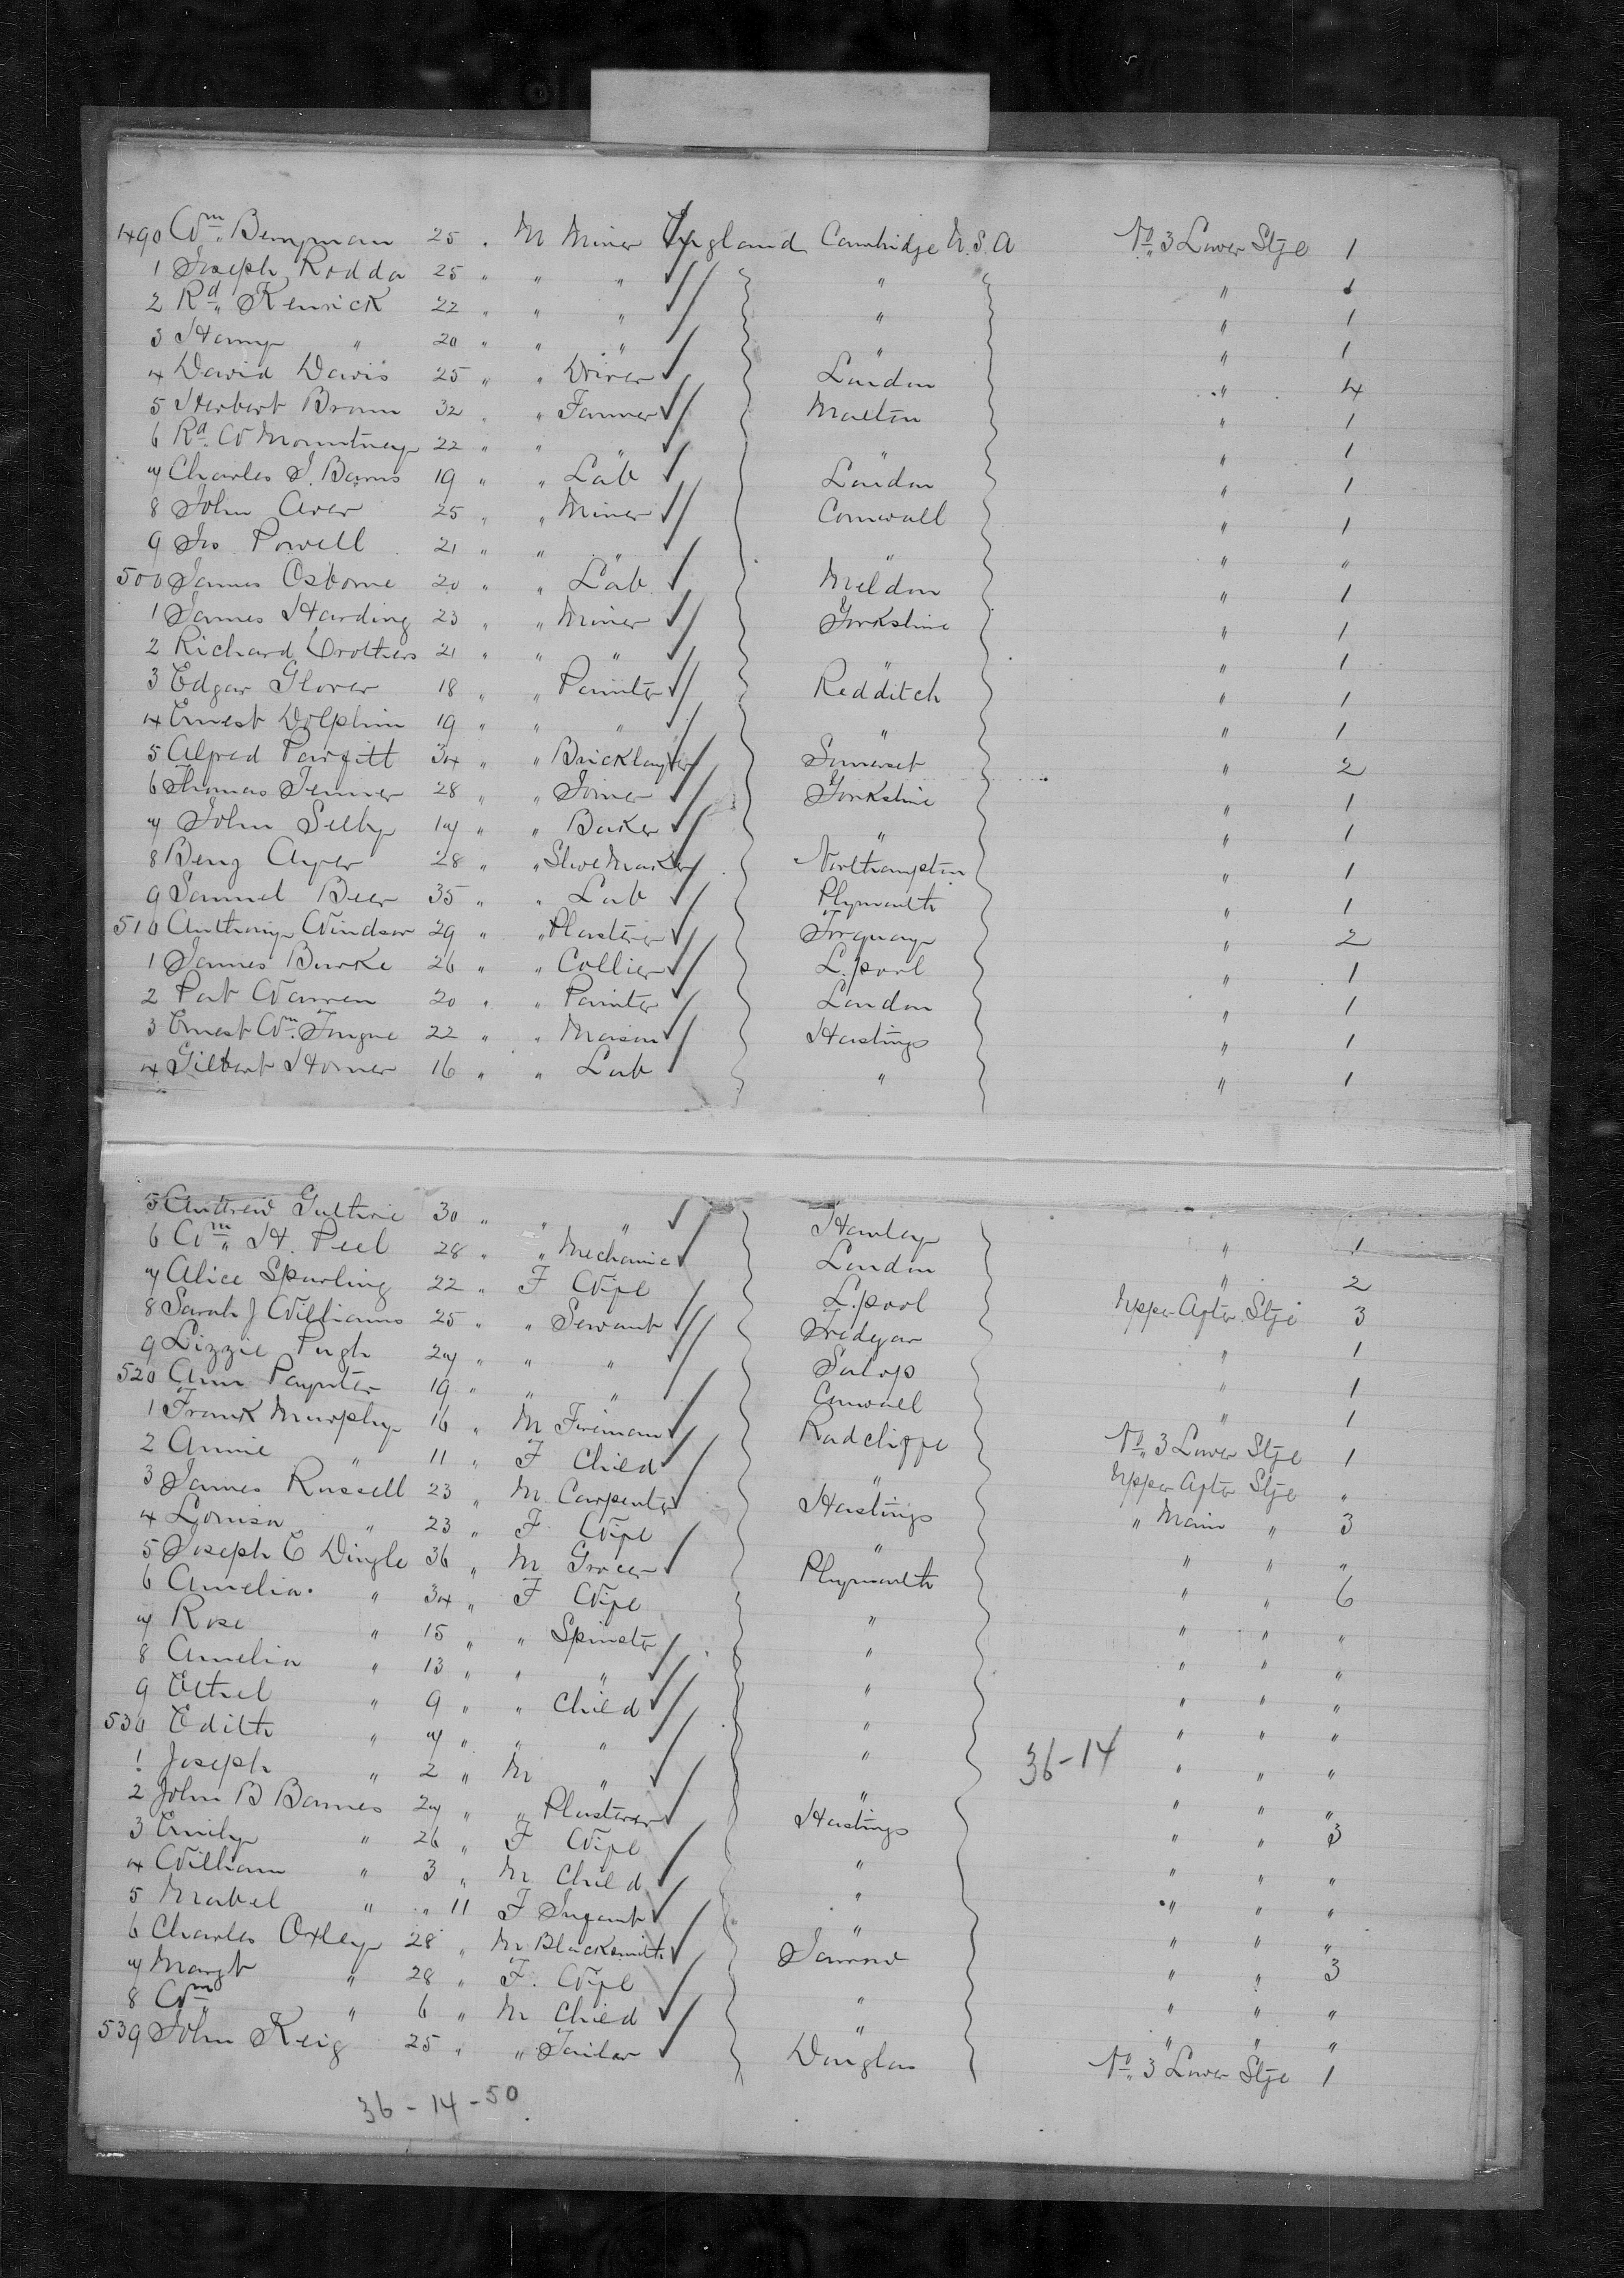 490 Wm. Benyman 25 " M Miner England Cambridge U.S.A No. 3 Lower Stge 1
1 Joseph Rodda 25 " " " " " 1
2 Rd. Kenrick 22 " " " " " 1
3 Harry " 20 " " " " " 1
4 David Davis 25 " " Driver London " 4
5 Herbert Brown 32 " " Farmer Malton " 1
6 Rd. W Mountney 22 " " " " " 1
7 Charles J. Barns 19 " " Lab London " 1
8 John Aver 25 " " Miner Cornwall " 1
9 Jas Powell 21 " " " " " "
500 James Osborne 20 " " Lab Meldon " 1
1 James Harding 23 " " Miner Yorkshire " 1
2 Richard Crothers 21 " " " " " 1
3 Edgar Glover 18 " " Painter Redditch " 1
4 Ernest Dolphin 19 " " " " " 1
5 Alfred Parfitt 34 " " Bricklayer Somerset " 2
6 Thomas Jenner 28 " " Joiner Yorkshire " 1
7 John Selby 17 " " Baker " " 1
8 Benj Ayer 28 " " Shoe Maker Northampton " 1
9 Samuel Beer 35 " " Lab Plymouth " 1
510 Anthony Windsor 29 " " Plasterer Torquay " 2
1 James Burke 26 " " Collier L.pool " 1
2 Pat Warren 20 " " Painter London " 1
3 Ernest Wm. Tongue 22 " " Mason Hastings " 1
4 Gilbert Horner 16 " " Lab " " 1
5 Andrew Guthrie 30 " " " Hanley " 1
6 Wm. H. Peel 28 " " Mechanic London " 2
7 Alice Sparling 22 " F Wife L.pool Upper After Stge 3
8 Sarah J Williams 25 " " Servant Tredegar " 1
9 Lizzie Pugh 27 " " " Salop " 1
520 Ann Paynter 19 " " " Cornwall " 1
1 Frank Murphy 16 " M Fireman Radcliffe No. 3 Lower Stge 1
2 Annie " 11 " F Child " Upper After Stge "
3 James Russell 23 " M Carpenter Hastings " Main " 3
4 Louisa " 23 " F Wife " " " "
5 Joseph C Dingle 36 " M Grocer Plymouth " " 6
6 Amelia " 34 " F Wife " " " "
7 Rose " 15 " " Spinster " " " "
8 Amelia " 13 " " " " " " "
9 Ethel " 9 " " Child " " " "
530 Edith " 7 " " " " " " "
1 Joseph " 2 " M " " 36-14 " " "
2 John B Barnes 27 " " Plasterer Hastings " " 3
3 Emily " 26 " F Wife " " " "
4 William " 3 " M Child " " " "
5 Mabel " " 11 F Infant " " " "
6 Charles Oxley 28 " M Blacksmith Jarrow " " 3
7 Margt " 28 " F. Wife " " " "
8 Wm " 6 " M Child " " " "
539 John Keig 25 " " Tailor Douglas No. 3 Lower Stge 1
36-14-50